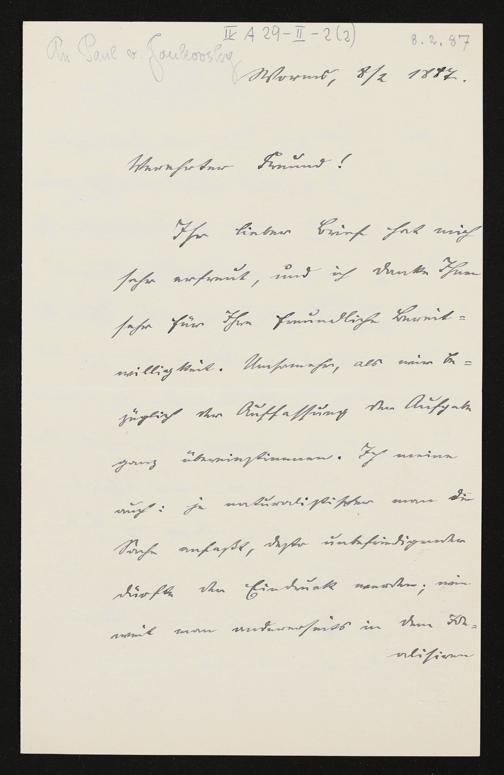 IV A 29-II-2(2)
8.2.87
An Paul v. Joukowsky
Worms, 8/2 1887.
Verehrter Freund!
Ihr lieber Brief hat mich
sehr erfreut, und ich danke Ihnen
sehr für Ihre freundliche Bereit=
willigkeit. Umsomehr, als wir be=
züglich der Auffassung der Aufgabe
ganz übereinstimmen. Ich meine
auch: je naturalistischer man die
Sache anfaßt, desto unbefriedigender
dürfte der Eindruck werden;
weit man andererseits in dem Ide=
alisiren